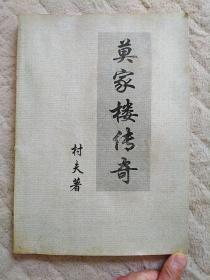 莫家楼传奇
村夫著